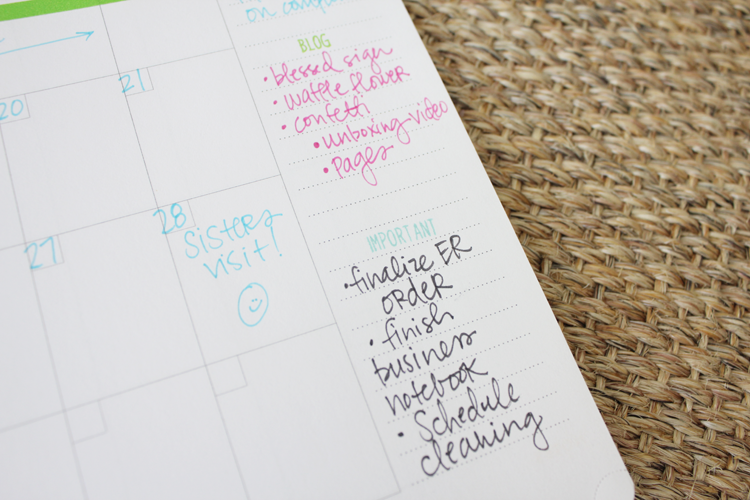 on
BLOG
• blessed sign
• waffle flower
• confetti
• unboxing video
• Pages
20
21
27
28
Sisters
visit!
IMPORTANT
• finalize ER
ORDER
• finish
business
notebook
• Schedule
cleaning